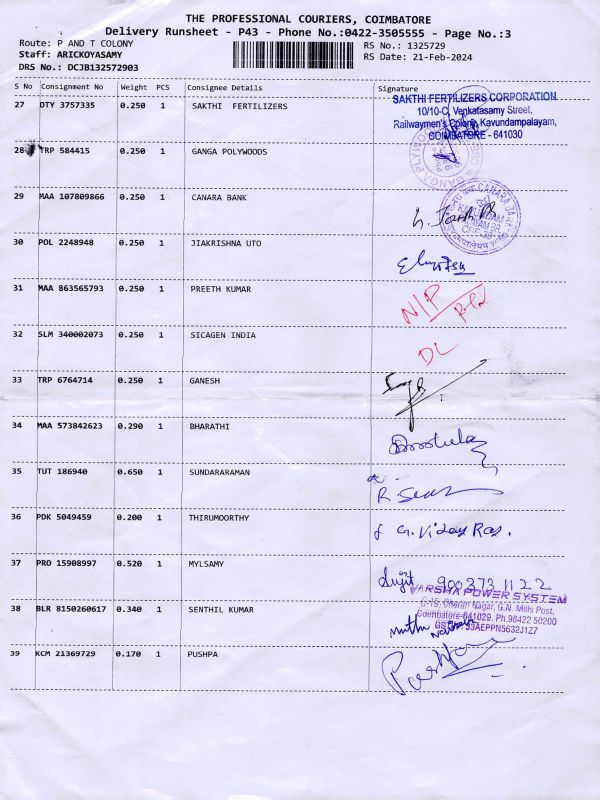 THE PROFESSIONAL COURIERS, COIMBATORE
Delivery Runsheet - P43 - Phone No.:0422-3505555 - Page No.:3
Route: P AND T COLONY
RS No.: 1325729
Staff: ARICKOYASAMY
RS Date: 21-Feb-2024
DRS No.: DCJB132572903
S No Consignment No Weight PCS Consignee Details Signature
27 OTY 3757335 0.250 1 SAKTHI FERTILIZERS
SAKTHI FERTILIZERS CORPORATION
10/10-C, Venkatasamy Street,
Railwaymen's Colony, Kavundampalayam,
COIMBATORE - 641030
28 TRP 584415 0.250 1 GANGA POLYWOODS
29 MAA 107809866 0.250 1 CANARA BANK
CANARA BANK
30 POL 2248948 0.250 1 JIAKRISHNA UTO
31 MAA 863565793 0.250 1 PREETH KUMAR
N/P
32 SLM 340002073 0.250 1 SICAGEN INDIA
DL
33 TRP 6764714 0.250 1 GANESH
34 MAA 573842623 0.290 1 BHARATHI
35 TUT 186940 0.650 1 SUNDARARAMAN
36 PDK 5049459 0.200 1 THIRUMOORTHY
G. Vijay Raj.
37 PRO 15908997 0.520 1 MYLSAMY
Sujit 900373 11 22
38 BLR 8150260617 0.340 1 SENTHIL KUMAR
VARSHA POWER SYSTEM
C-15, Cheran Nagar, G.N. Mills Post,
Coimbatore-641029. Ph.98422 50200
33AEPPN5632J1Z7
Muthu
39 KCM 21369729 0.170 1 PUSHPA